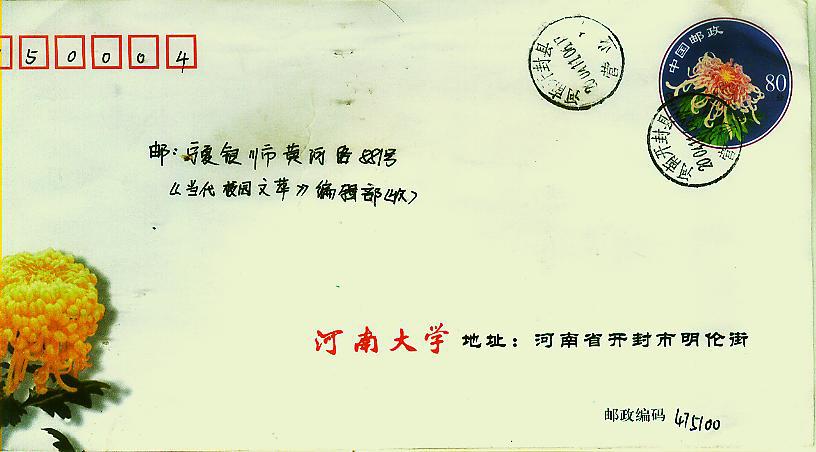 50004
中国邮政
80
河南开封县
2004.11.04.17
河南开封县
邮：宁夏银川市黄河路889号
《当代校园文萃》编辑部(收)
河南大学 地址：河南省开封市明伦街
邮政编码 475100